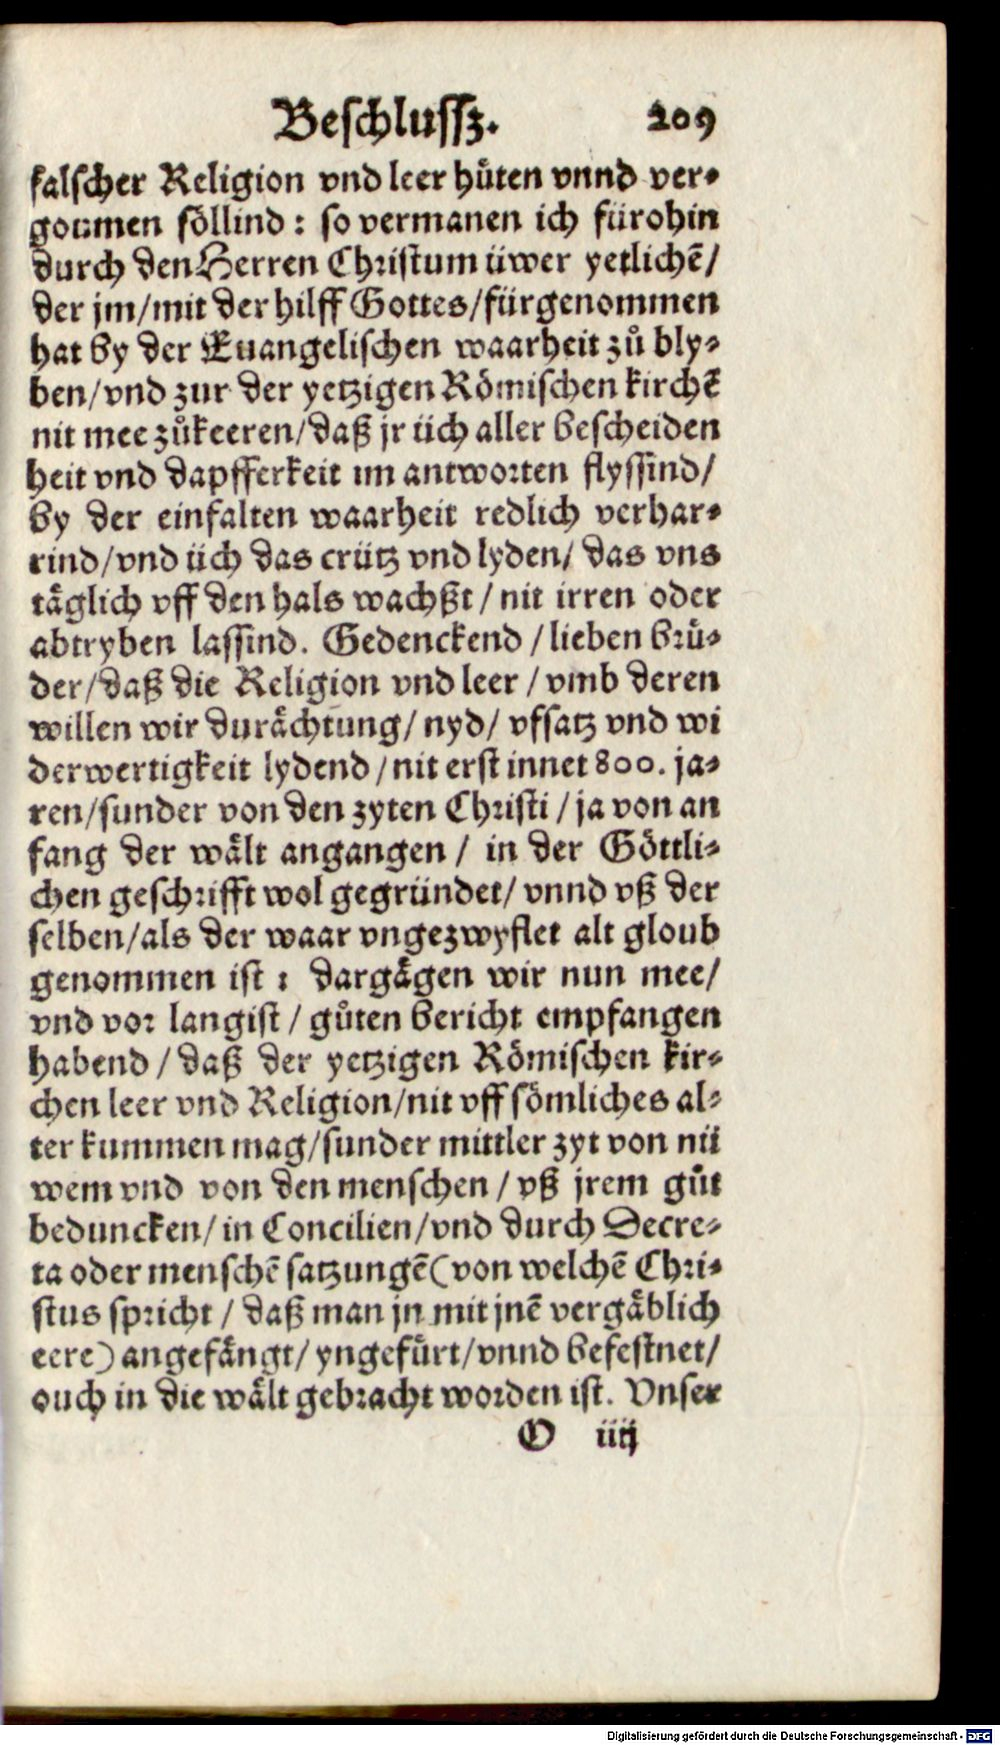 Beschlussz. 209
falscher Religion vnd leer hůten vnnd ver-
goumen söllind: so vermanen ich fürohin
durch den Herren Christum üwer yetlichē/
der jm/mit der hilff Gottes/fürgenommen
hat by der Euangelischen waarheit zů bly-
ben/vnd zur der yetzigen Römischen kirchē
nit mee zůkeeren/daß jr üch aller bescheiden
heit vnd dapfferkeit im antworten flyssind/
by der einfalten waarheit redlich verhar-
rind/vnd üch das crütz vnd lyden/das vns
täglich vff den hals wachßt/nit irren oder
abtryben lassind. Gedenckend/lieben brů-
der/daß die Religion vnd leer/vmb deren
willen wir durächtung/nyd/vfsatz vnd wi
derwertigkeit lydend/nit erst innet 800. ja-
ren/sunder von den zyten Christi/ja von an
fang der wält angangen/in der Göttli-
chen geschrifft wol gegründet/vnnd vß der
selben/als der waar vngezwyflet alt gloub
genommen ist: dargägen wir nun mee/
vnd vor langist/gůten bericht empfangen
habend/daß der yetzigen Römischen kir-
chen leer vnd Religion/nit vff sömliches al-
ter kummen mag/sunder mittler zyt von nü
wem vnd von den menschen/vß jrem gůt
beduncken/in Concilien/vnd durch Decre-
ta oder menschē satzungē(von welchē Chri-
stus spricht/daß man jn mit jnē vergäblich
eere)angefängt/yngefůrt/vnnd befestnet/
ouch in die wält gebracht worden ist. Vnser
O iiij
Digitalisierung gefördert durch die Deutsche Forschungsgemeinschaft - DFG